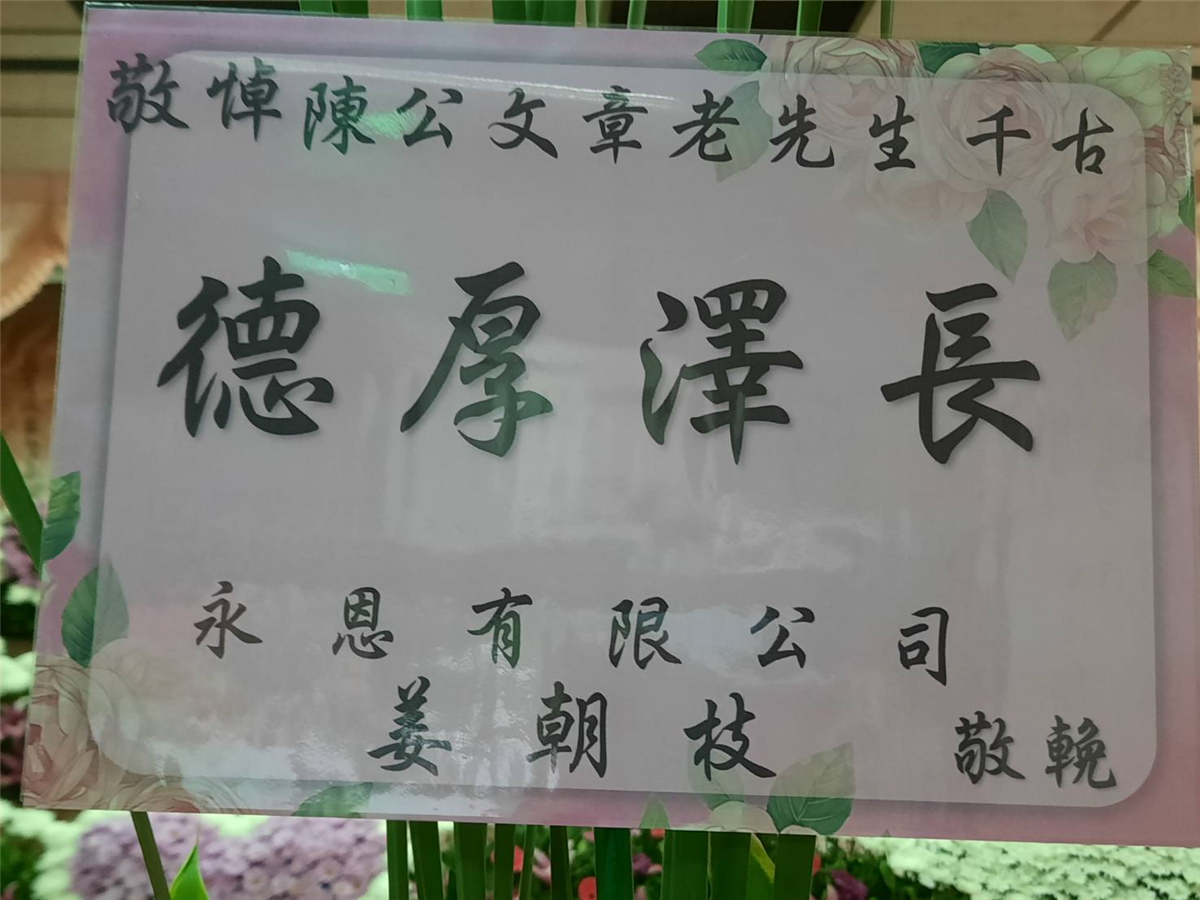 敬悼陳公文章老先生千古
德厚澤長
永恩有限公司
姜朝枝 敬輓